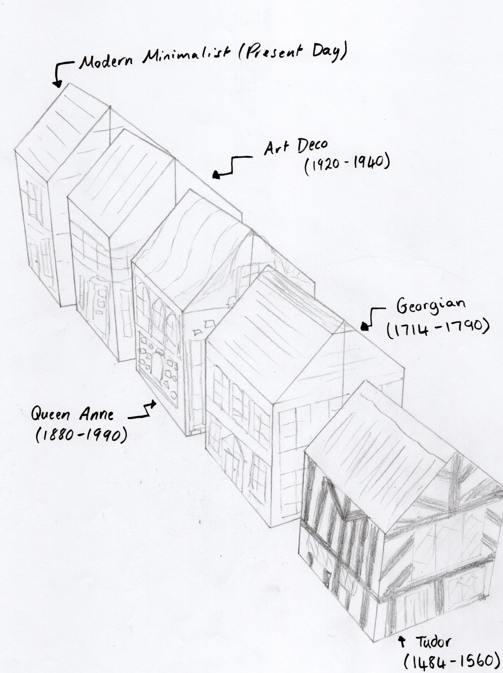 Modern Minimalist (Present Day)
Art Deco
(1920-1940)
Georgian
(1714-1790)
Queen Anne
(1880-1990)
Tudor
(1484-1560)